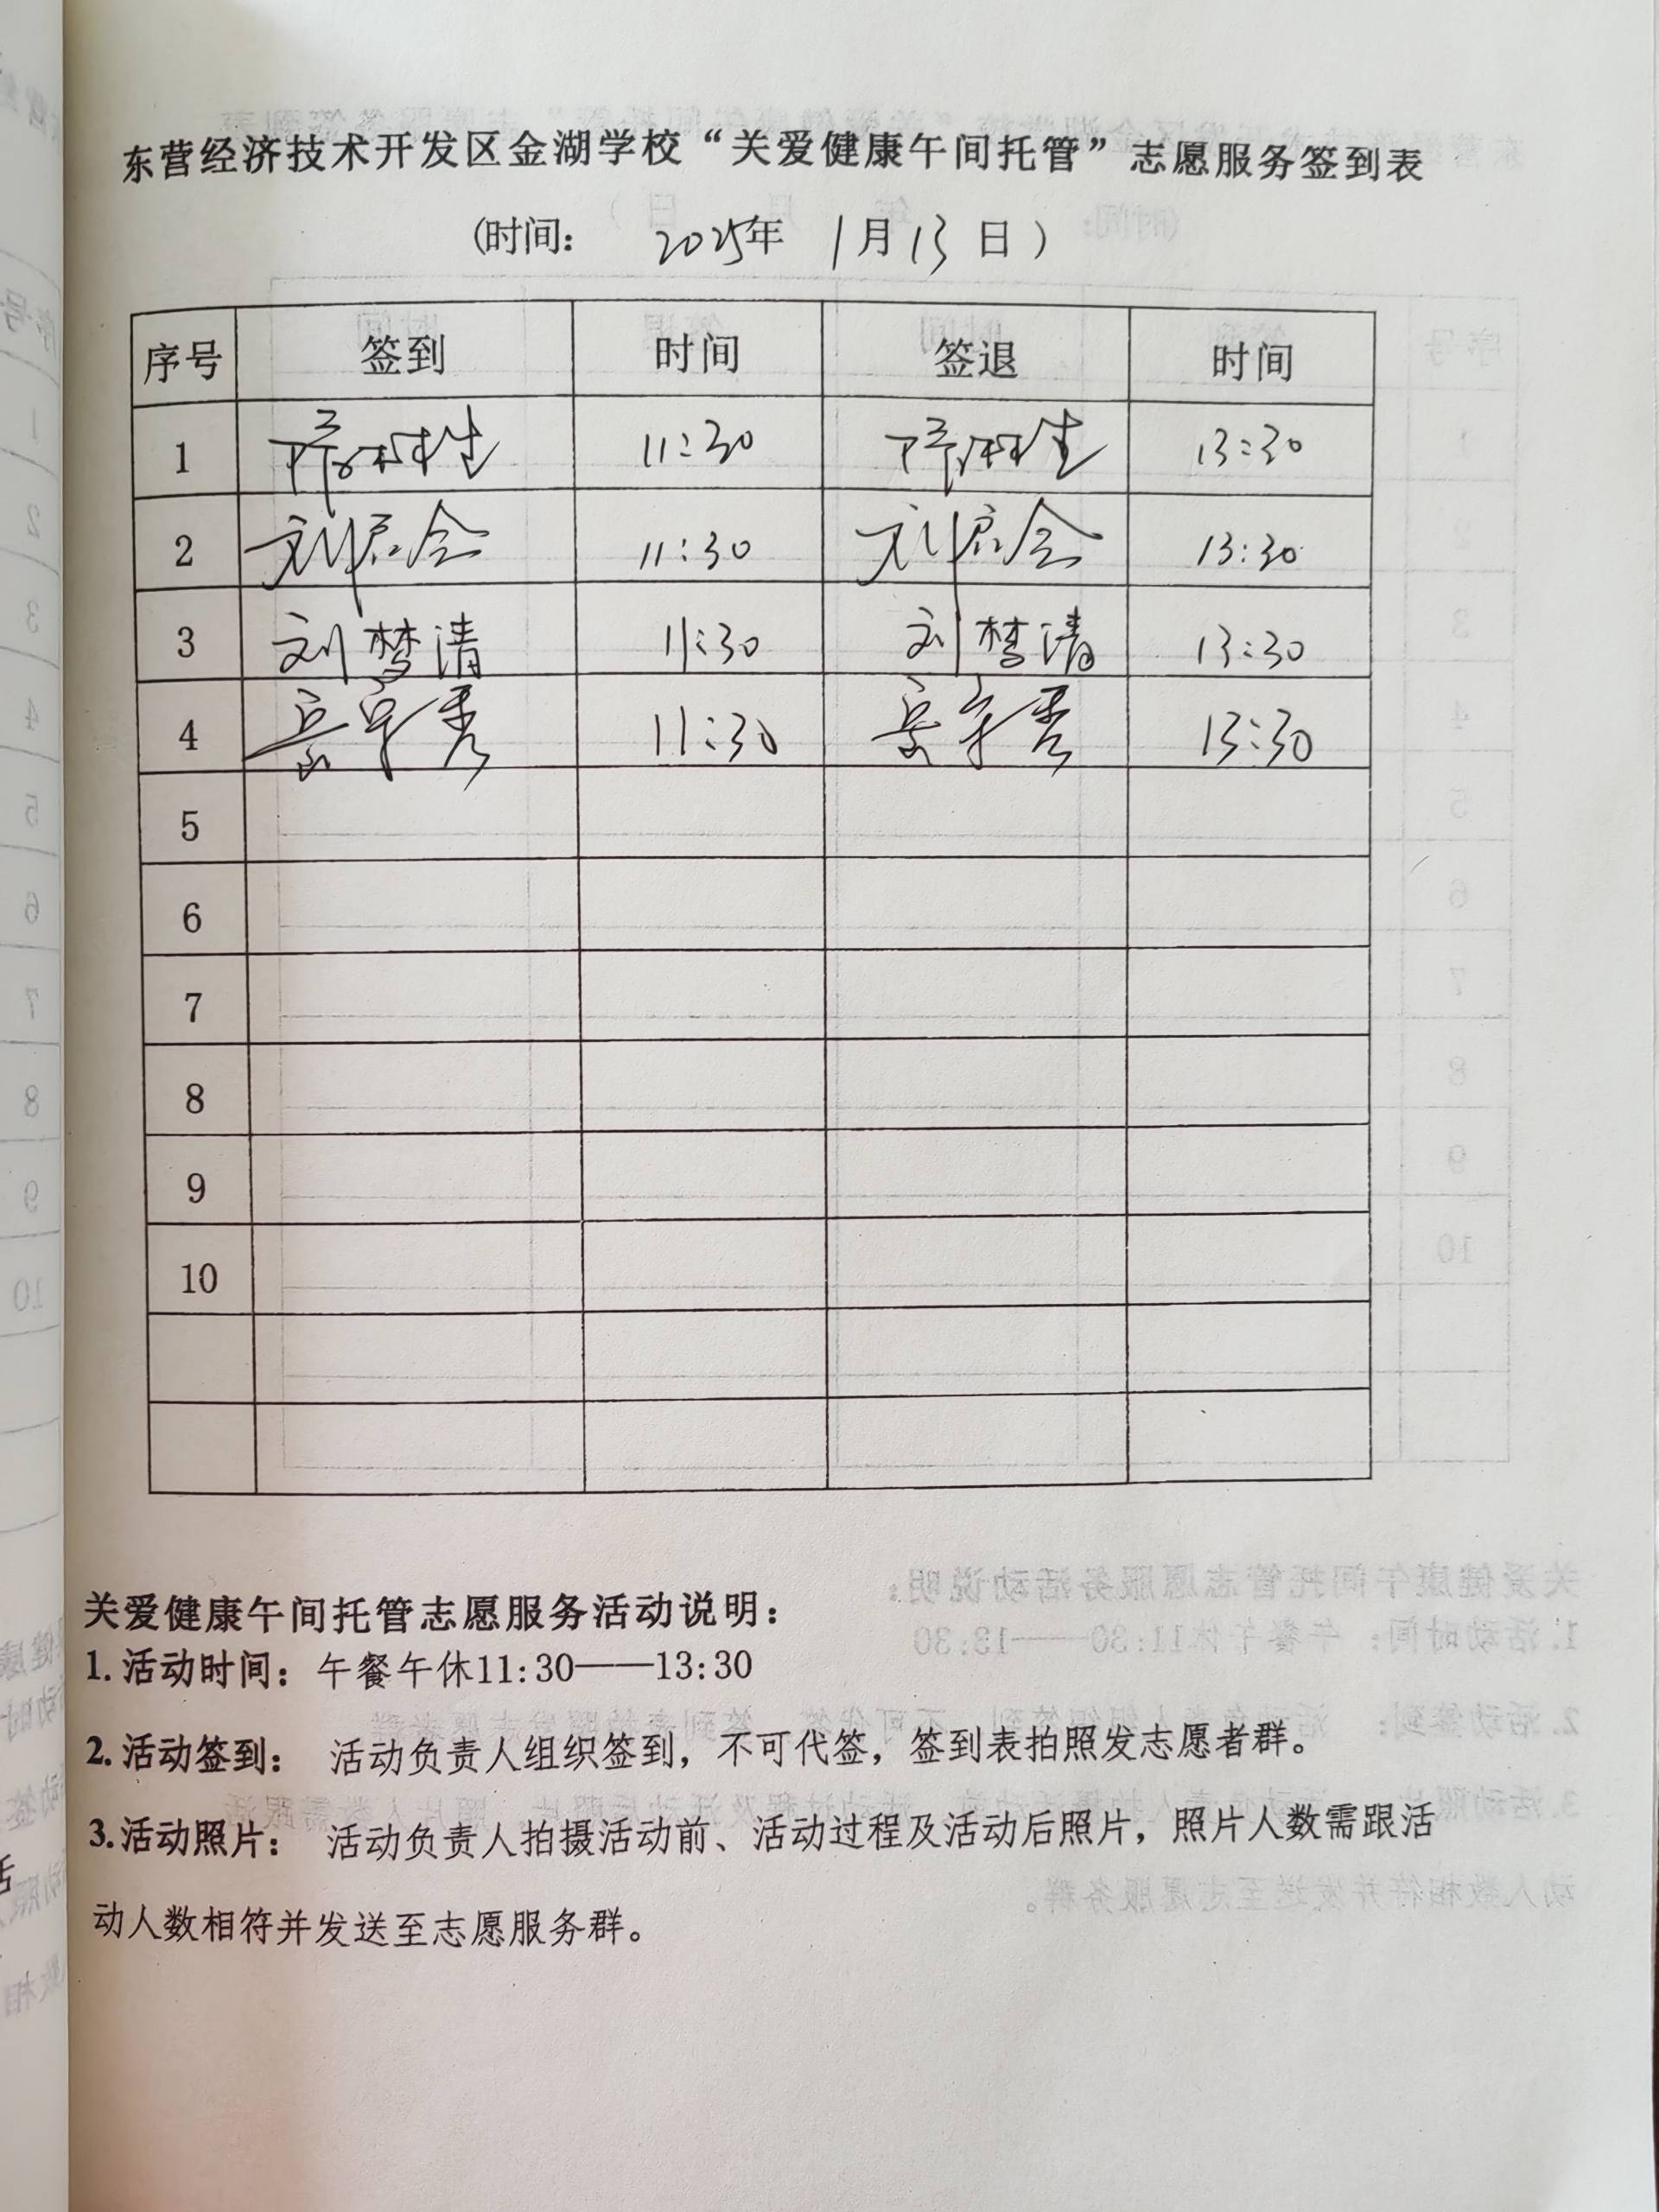 东营经济技术开发区金湖学校“关爱健康午间托管”志愿服务签到表
(时间： 2025年 1月13日）
序号 签到 时间 签退 时间
1 11:30 13:30
2 刘 11:30 刘 13:30
3 刘梦清 11:30 刘梦清 13:30
4 秀 11:30 秀 13:30
5
6
7
8
9
10
关爱健康午间托管志愿服务活动说明：
1.活动时间：午餐午休11:30——13:30
2.活动签到： 活动负责人组织签到，不可代签，签到表拍照发志愿者群。
3.活动照片： 活动负责人拍摄活动前、活动过程及活动后照片，照片人数需跟活
动人数相符并发送至志愿服务群。